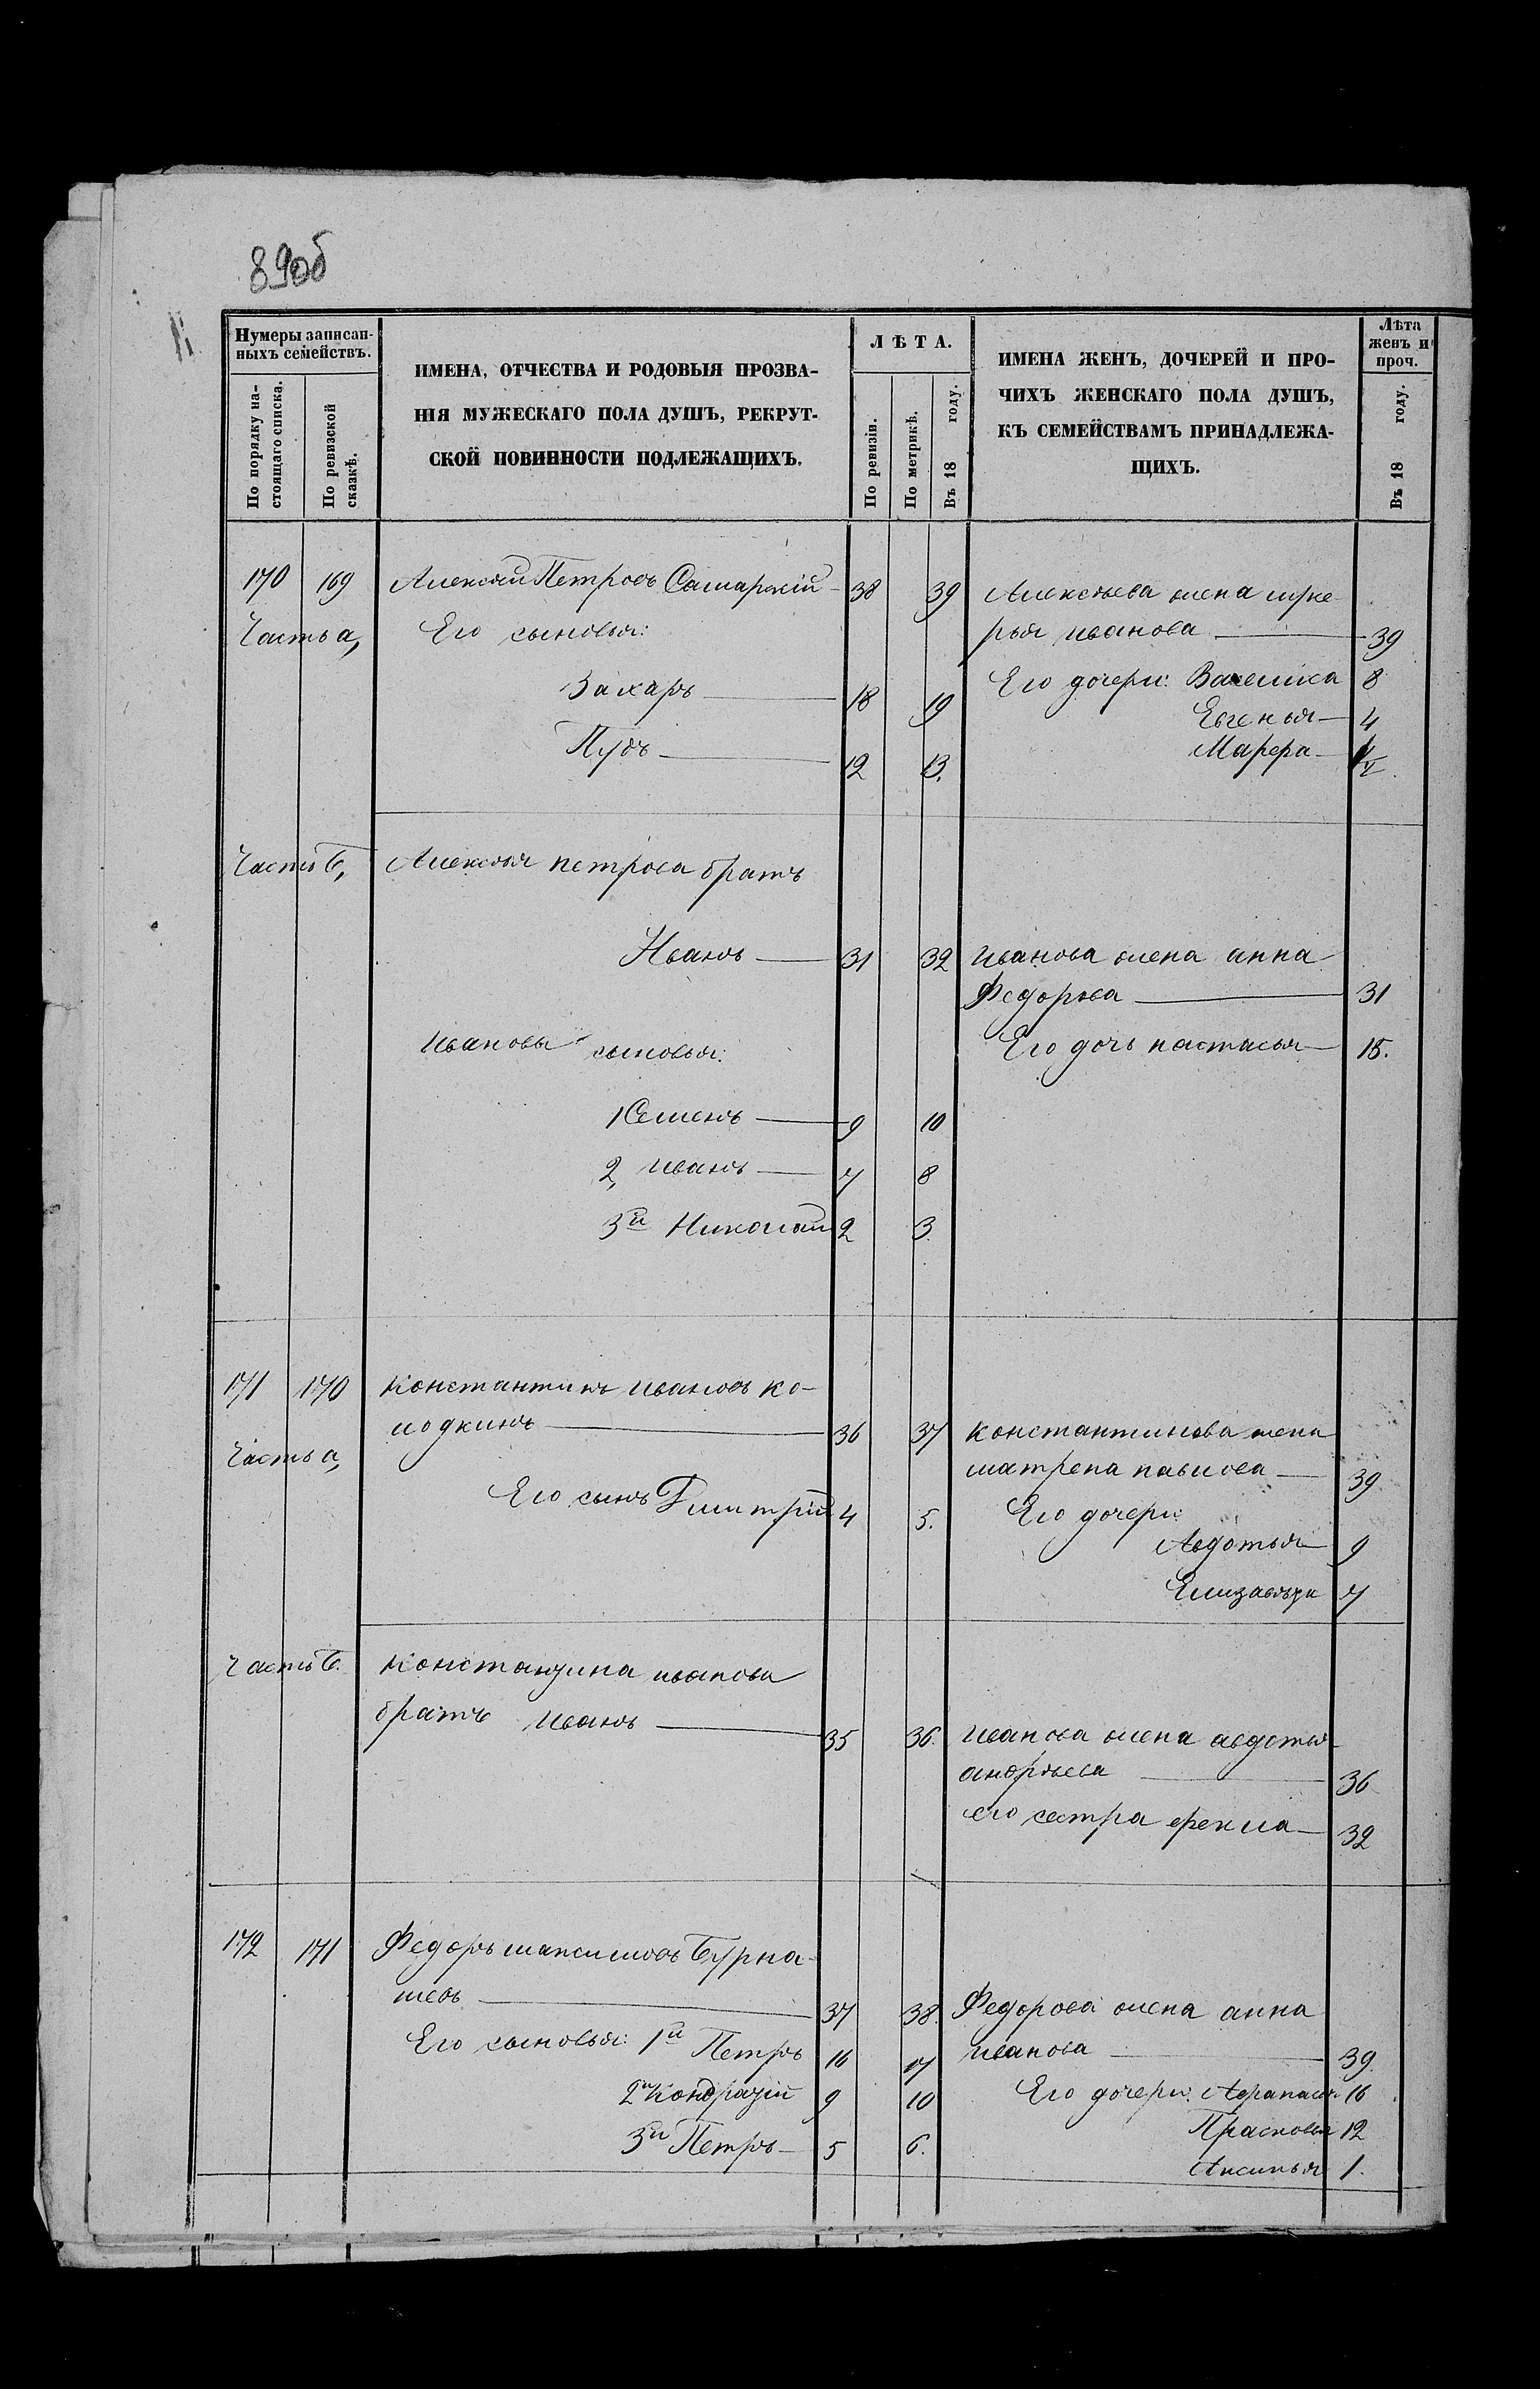 89об
Нумеры записан-
ныхъ семействъ.
По порядку на-
стоящаго списка.
По ревизской
сказкѣ.
ИМЕНА, ОТЧЕСТВА И РОДОВЫЯ ПРОЗВА-
НІЯ МУЖЕСКАГО ПОЛА ДУШЪ, РЕКРУТ-
СКОЙ ПОВИННОСТИ ПОДЛЕЖАЩИХЪ.
ЛѢТА.
По ревизіи.
По метрикѣ.
Въ 18 году.
ИМЕНА ЖЕНЪ, ДОЧЕРЕЙ И ПРО-
ЧИХЪ ЖЕНСКАГО ПОЛА ДУШЪ,
КЪ СЕМЕЙСТВАМЪ ПРИНАДЛЕЖА-
ЩИХЪ.
Лѣта
женъ и
проч.
Въ 18 году.
170 169 Алексѣй Петровъ Самарскій 38 39 Алексѣева жена
Часть а, Его сыновья: иванова 39
Захаръ 18 19 Его дочери: 8
Евгенья 4
Пудъ 12 13. Марфа
Часть б, Алексѣя петрова братъ
Иванъ 31 32 иванова жена анна
Федорова 31
ивановы сыновья: Его дочь настасья 15.
1 Семенъ 9 10
2, иванъ 7 8
3й Николай 2 3.
171 170 Константинъ ивановъ Ко-
лодкинъ 36 37 Константинова жена
Часть а, матрена павлова 39
Его сынъ Дмитрій 4 5. Его дочери:
Авдотья 9
Елизавета 7
Часть б. Константина иванова
братъ иванъ 35 36. иванова жена авдотья
андрѣева 36
его сестра фекла 32
172 171 Федоръ максимовъ Бурна-
шевъ 37 38. Федорова жена анна
Его сыновья: 1й Петръ 16 17 иванова 39.
2й Кондратій 9 10 Его дочери: Афанасья 16
3й Петръ 5 6. Прасковья 12
Аксинья 1.